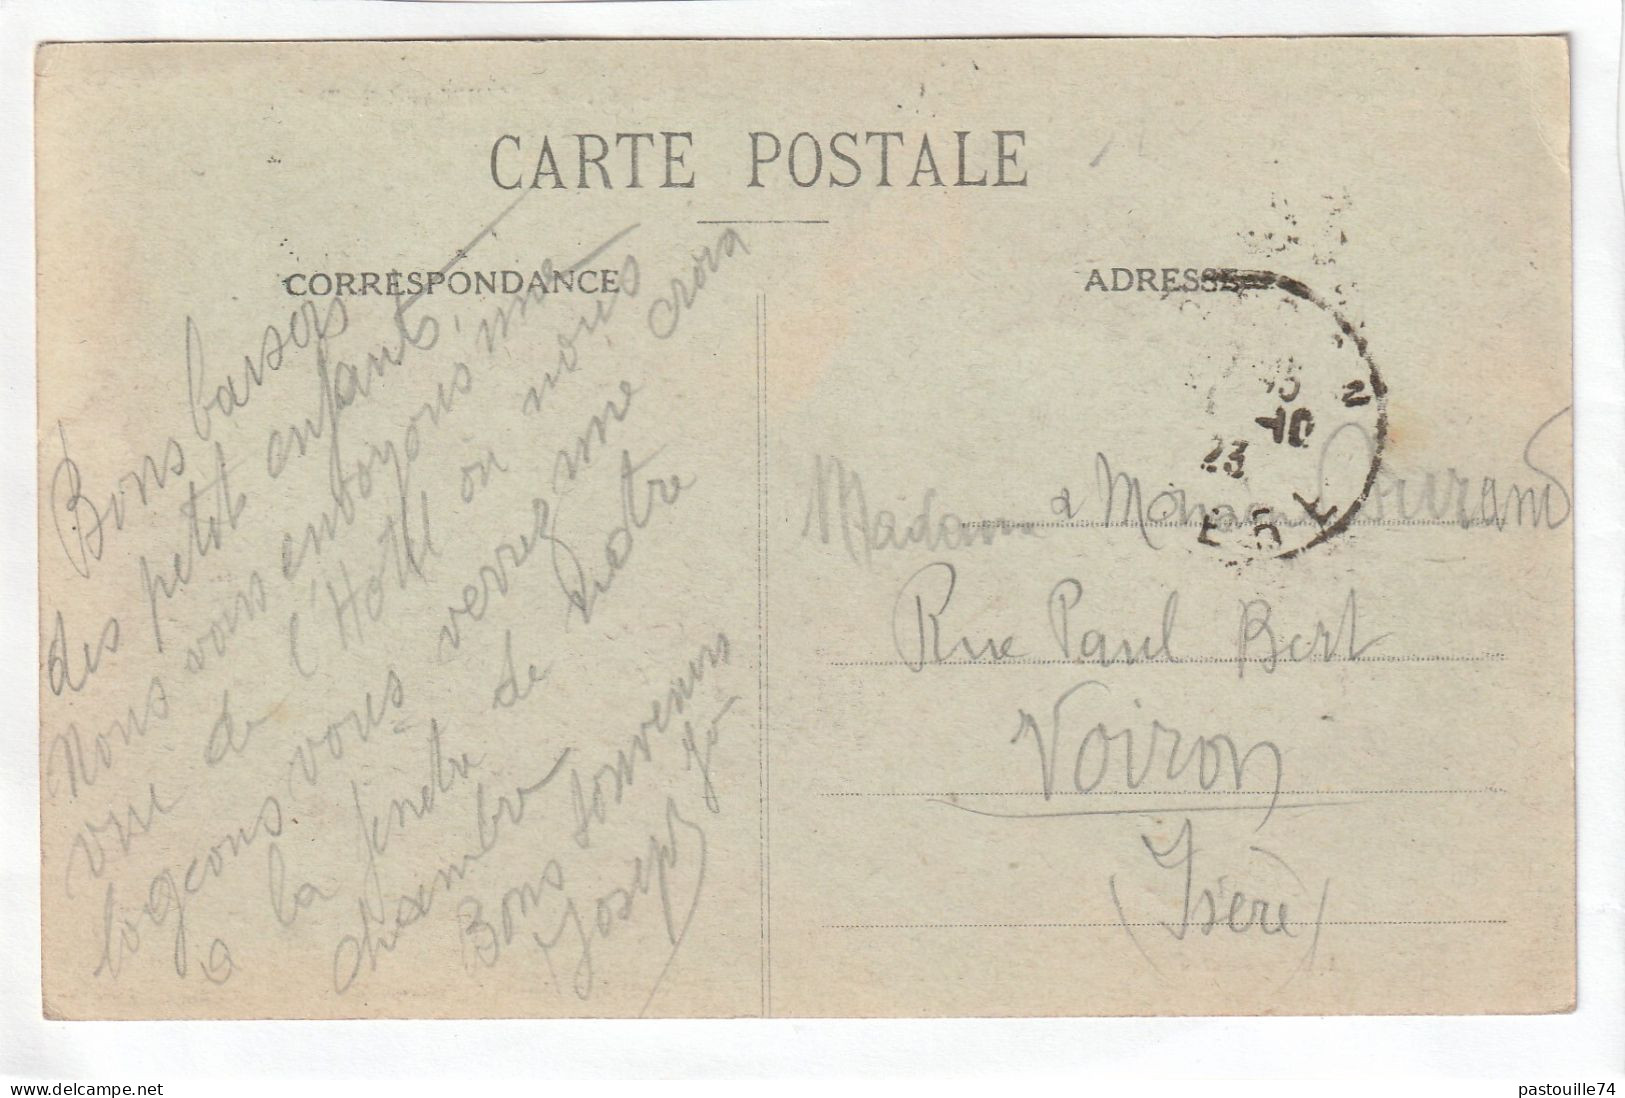 CARTE POSTALE
CORRESPONDANCE
ADRESSE
Bons baisers
des petits enfants.
Nous vous envoyons une
vue de l'Hotel ou nous
logeons vous verrez une croix
a la fenetre de notre
chambre
Bons souvenirs
Joseph
Madame & Durand
Rue Paul Bert
Voiron
(Isère)
10
23
www.delcampe.net
pastouille74